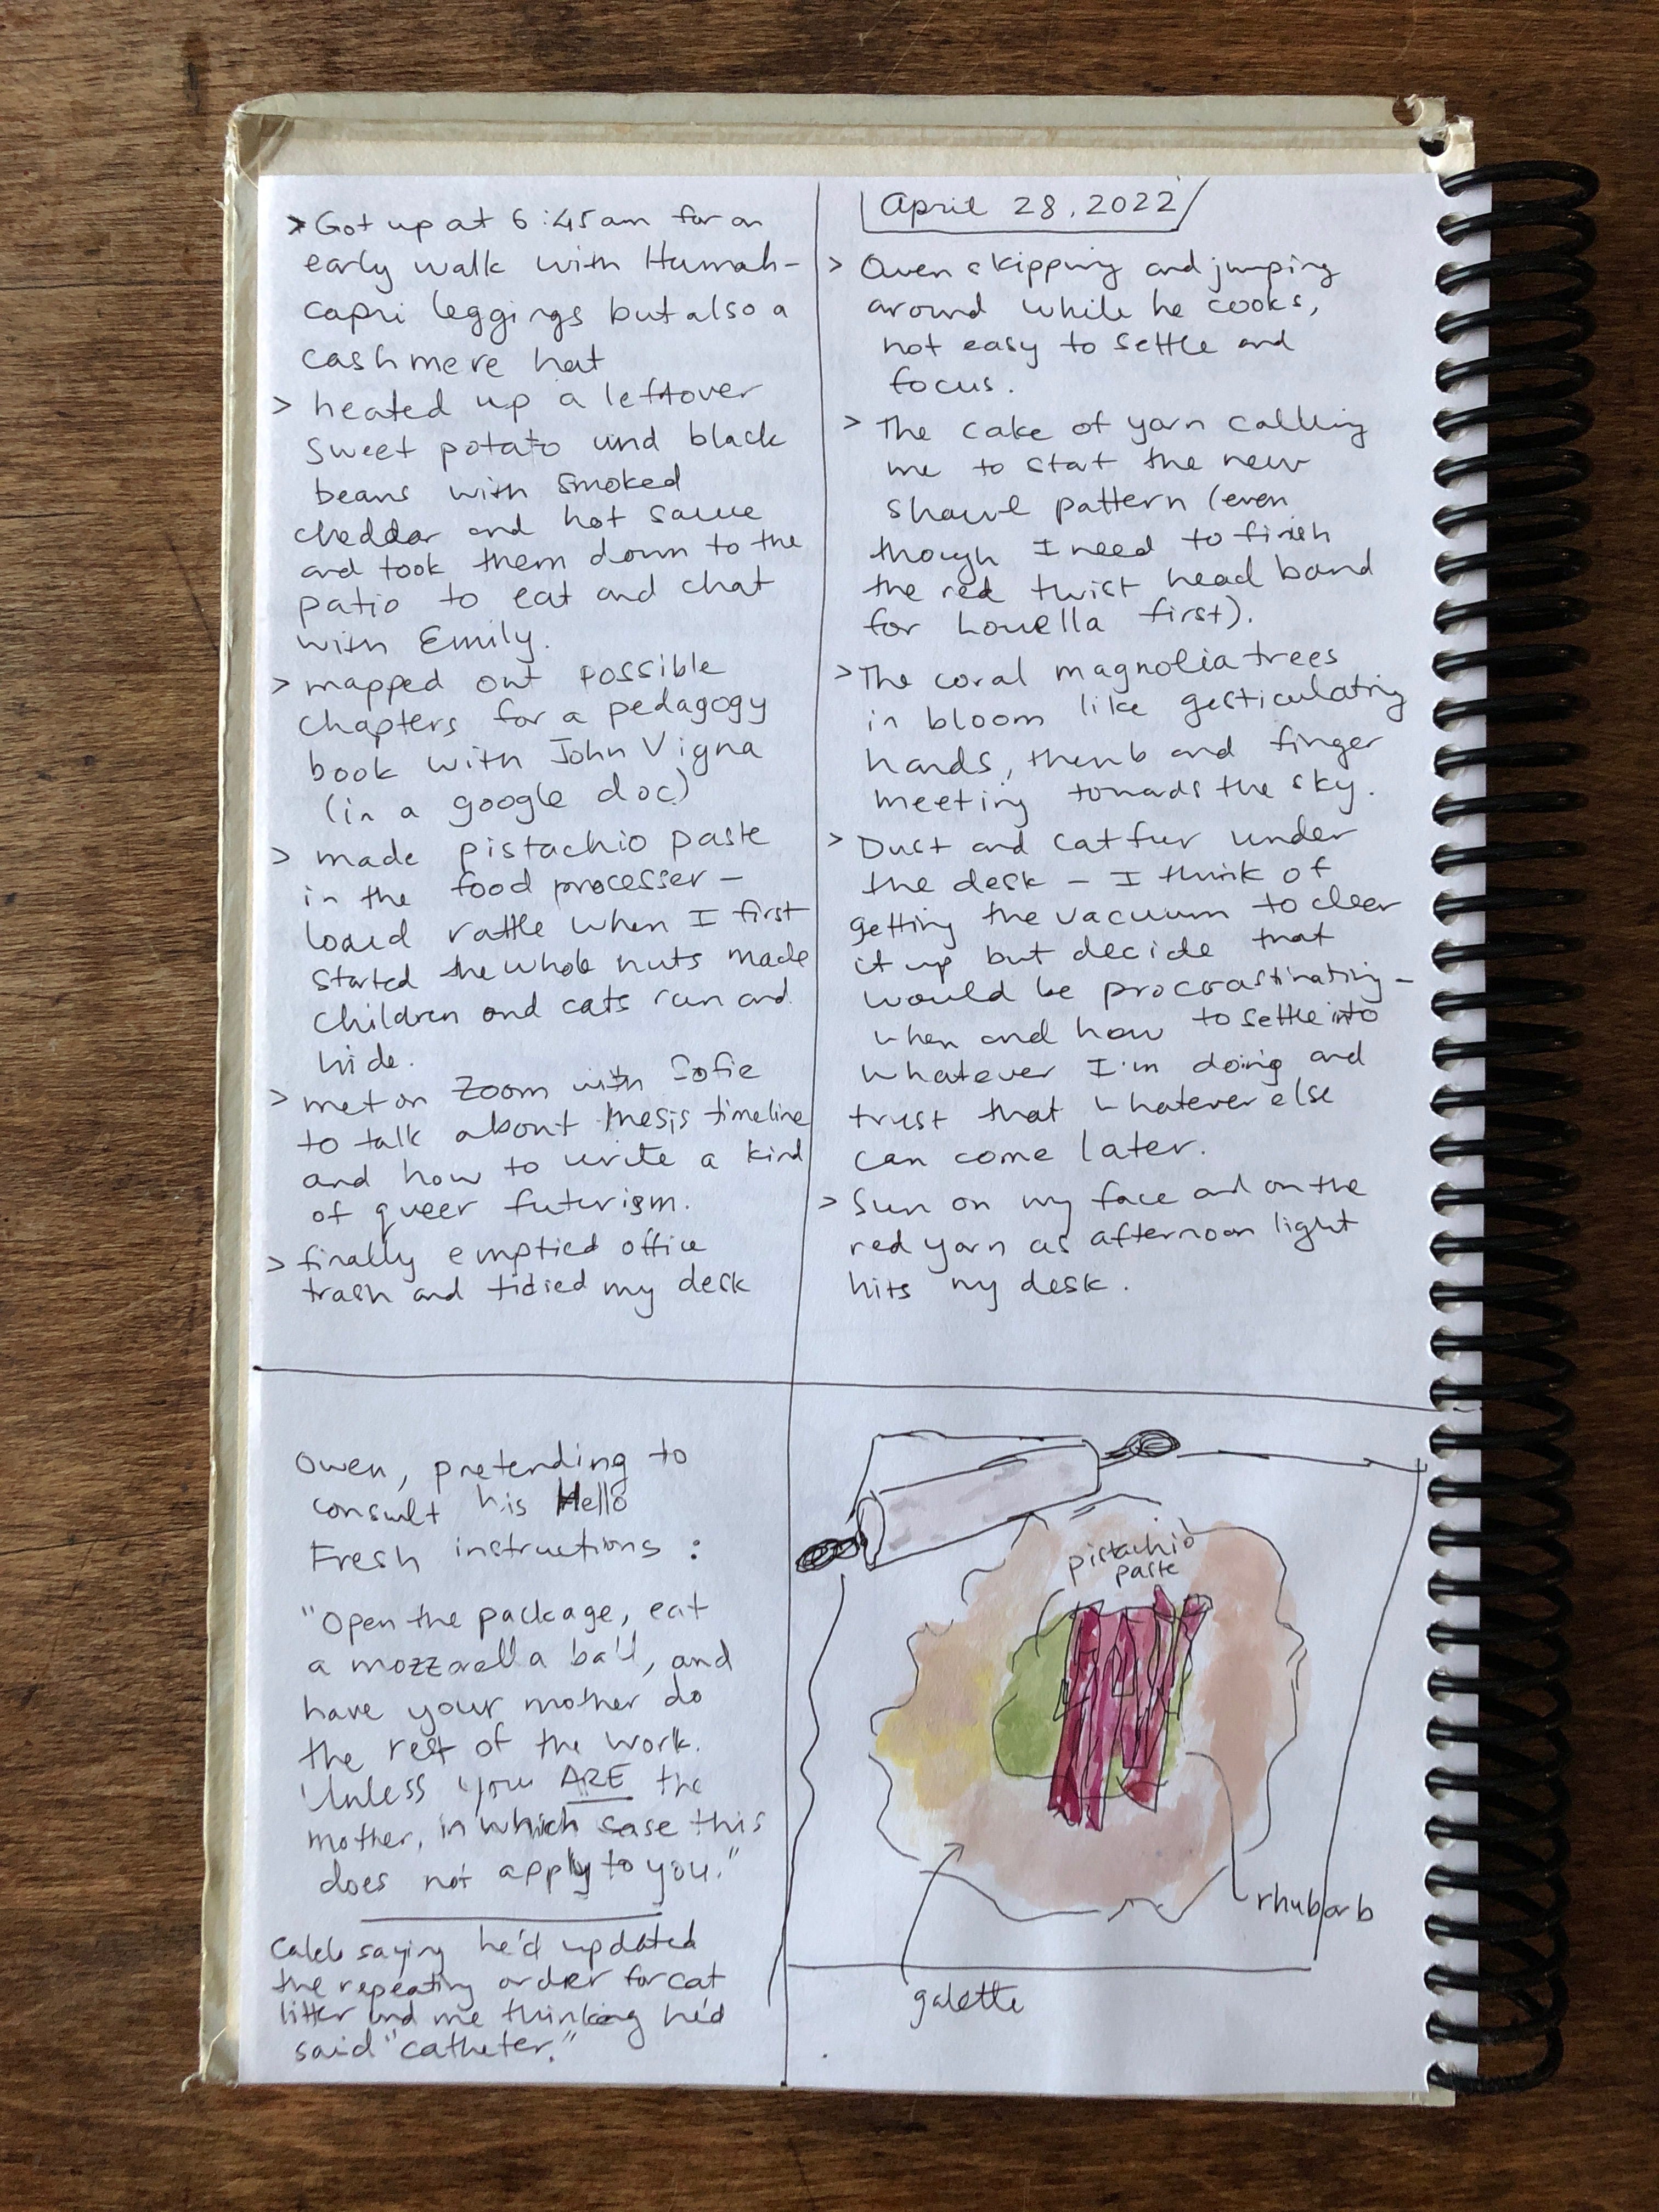 > Got up at 6:45am for an
early walk with Humah-
capri leggings but also a
cashmere hat
> heated up a leftover
sweet potato and black
beans with smoked
cheddar and hot sauce
and took them down to the
patio to eat and chat
with Emily.
> mapped out possible
chapters for a pedagogy
book with John Vigna
(in a google doc)
> made pistachio paste
in the food processer –
loud rattle when I first
started the whole nuts made
children and cats run and
hide.
> met on Zoom with Sofie
to talk about thesis timeline
and how to write a kind
of queer futurism.
> finally emptied office
trash and tidied my desk
April 28, 2022
> Owen skipping and jumping
around while he cooks,
not easy to settle and
focus.
> The cake of yarn calling
me to start the new
shawl pattern (even
though I need to finish
the red twist head band
for Louella first).
> The coral magnolia trees
in bloom like gesticulating
hands, thumb and finger
meeting towards the sky.
> Dust and cat fur under
the desk – I think of
getting the vacuum to clear
it up but decide that
would be procrastinating –
when and how to settle into
whatever I'm doing and
trust that whatever else
can come later.
> Sun on my face and on the
red yarn as afternoon light
hits my desk.
Owen, pretending to
consult his Hello
Fresh instructions:
"Open the package, eat
a mozzarella ball, and
have your mother do
the rest of the work.
Unless you ARE the
mother, in which case this
does not apply to you."
Caleb saying he'd updated
the repeating order for cat
litter and me thinking he'd
said "catheter."
pistachio
paste
rhubarb
galette